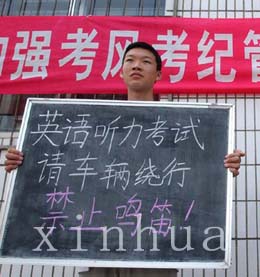 加强考风考纪管
英语听力考试
请车辆绕行
禁止鸣笛！
xinhua